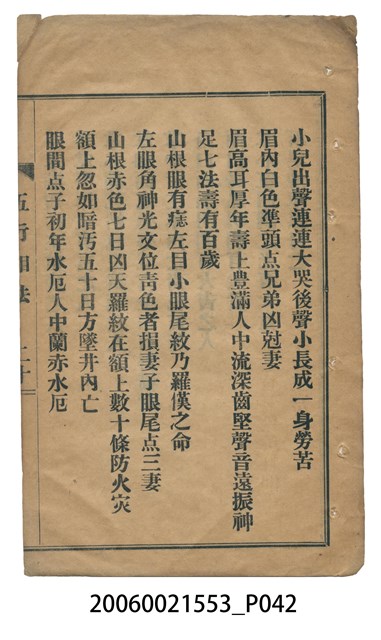 小兒出聲連連大哭後聲小長成一身勞苦
眉內白色準頭点兄弟凶尅妻
眉高耳厚年壽上豐滿人中流深齒堅聲音遠振神
足七法壽有百歲
山根眼有痣左目小眼尾紋乃羅僕之命
左眼角神光文位靑色者損妻子眼尾点三妻
山根赤色七日凶天羅紋在額上數十條防火灾
額上忽如暗汚五十日方墜井內亡
眼間点子初年水厄人中蘭赤水厄
五行相法
二十
20060021553_P042